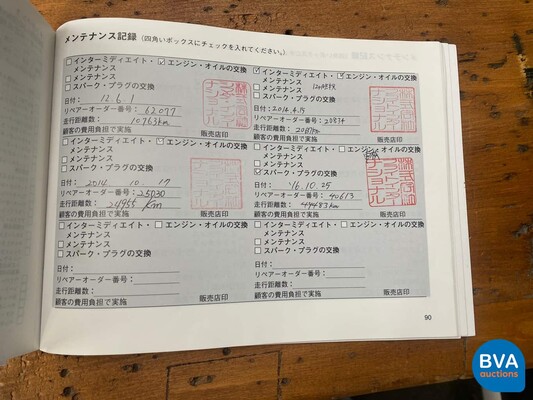 メンテナンス記録 (四角いボックスにチェックを入れてください。)
インターミディエイト・ エンジン・オイルの交換
メンテナンス
メンテナンス
スパーク・プラグの交換
日付: 12.6.1
リペアーオーダー番号: 62077
走行距離数: 10763km
顧客の費用負担で実施 販売店印
インターミディエイト・ エンジン・オイルの交換
メンテナンス
メンテナンス
スパーク・プラグの交換
日付: 2014.4.15
リペアーオーダー番号: 20834
走行距離数:
顧客の費用負担で実施 販売店印
インターミディエイト・ エンジン・オイルの交換
メンテナンス
メンテナンス
スパーク・プラグの交換
日付: 2014 10 17
リペアーオーダー番号: 25030
走行距離数: 24955 km
顧客の費用負担で実施 販売店印
インターミディエイト・ エンジン・オイルの交換
メンテナンス
メンテナンス
スパーク・プラグの交換
日付: '16.10.25
リペアーオーダー番号: 40613
走行距離数: 49483km
顧客の費用負担で実施 販売店印
インターミディエイト・ エンジン・オイルの交換
メンテナンス
メンテナンス
スパーク・プラグの交換
日付:
リペアーオーダー番号:
走行距離数:
顧客の費用負担で実施 販売店印
インターミディエイト・ エンジン・オイルの交換
メンテナンス
メンテナンス
スパーク・プラグの交換
日付:
リペアーオーダー番号:
走行距離数:
顧客の費用負担で実施 販売店印
90
BVA
auctions